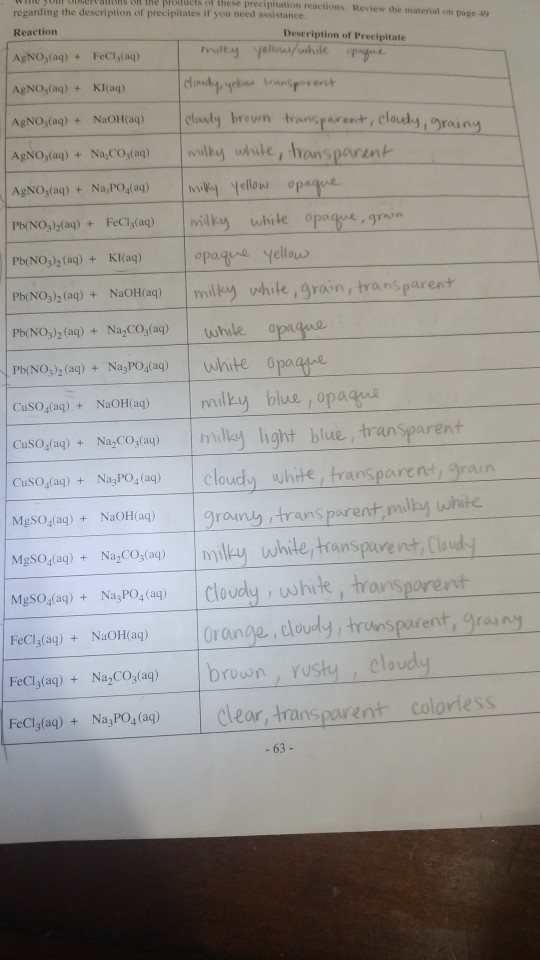 Write your observations on the products of these precipitation reactions. Review the material on page 49
regarding the description of precipitates if you need assistance.
Reaction Description of Precipitate
AgNO₃(aq) + FeCl₃(aq) milky yellow/white opaque
AgNO₃(aq) + KI(aq) cloudy, yellow transparent
AgNO₃(aq) + NaOH(aq) cloudy brown transparent, cloudy, grainy
AgNO₃(aq) + Na₂CO₃(aq) milky white, transparent
AgNO₃(aq) + Na₃PO₄(aq) milky yellow opaque
Pb(NO₃)₂(aq) + FeCl₃(aq) milky white opaque, grain
Pb(NO₃)₂(aq) + KI(aq) opaque yellow
Pb(NO₃)₂(aq) + NaOH(aq) milky white, grain, transparent
Pb(NO₃)₂(aq) + Na₂CO₃(aq) white opaque
Pb(NO₃)₂(aq) + Na₃PO₄(aq) white opaque
CuSO₄(aq) + NaOH(aq) milky blue, opaque
CuSO₄(aq) + Na₂CO₃(aq) milky light blue, transparent
CuSO₄(aq) + Na₃PO₄(aq) cloudy white, transparent, grain
MgSO₄(aq) + NaOH(aq) grainy, transparent, milky white
MgSO₄(aq) + Na₂CO₃(aq) milky white, transparent, Cloudy
MgSO₄(aq) + Na₃PO₄(aq) Cloudy, white, transparent
FeCl₃(aq) + NaOH(aq) orange, cloudy, transparent, grainy
FeCl₃(aq) + Na₂CO₃(aq) brown, rusty, cloudy
FeCl₃(aq) + Na₃PO₄(aq) Clear, transparent colorless
- 63 -